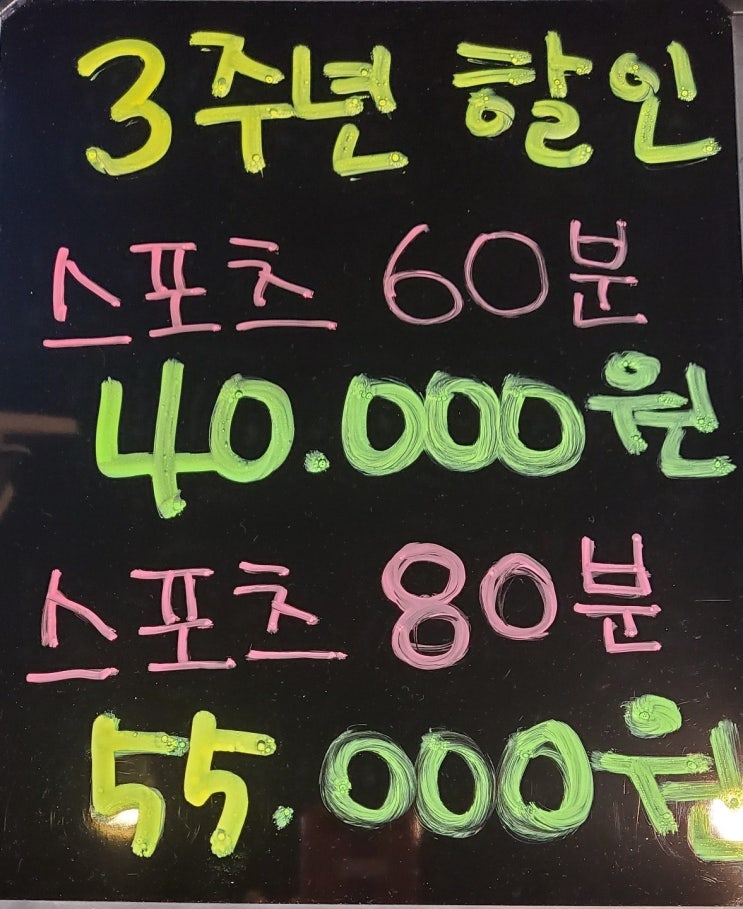 3주년 할인
스포츠 60분
40.000원
스포츠 80분
55.000원